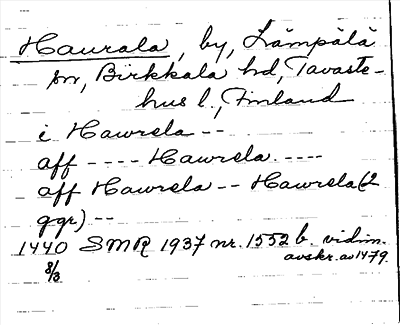 Haurala, by, Lämpälä
sn, Birkkala hd, Tavaste-
hus l., Finland
i Hawrela --
aff ---- Hawrela. ----
aff Hawrela -- Hawrela (2
ggr) --
1440 SMR 1937 nr. 1552 b. vidim.
8/3 avskr. av 1479.